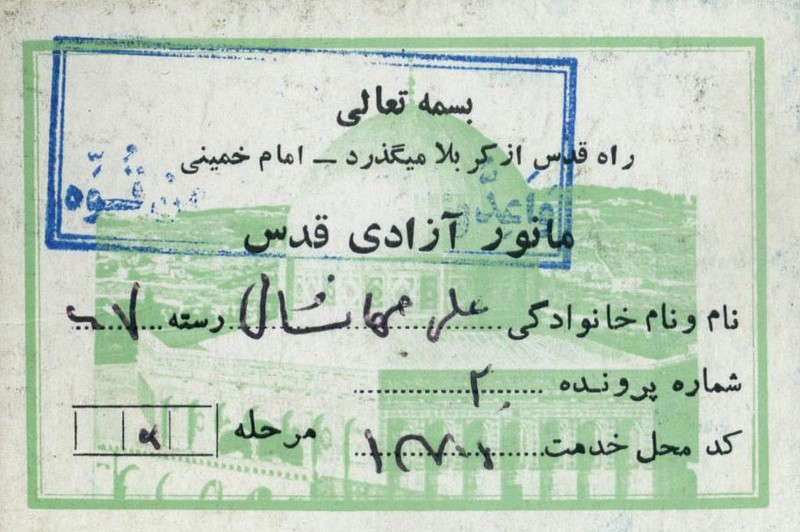 بسمه تعالی
راه قدس از کربلا میگذرد ـ امام خمینی
مانور آزادی قدس
نام و نام خانوادگی علی جهانشال رسته
شماره پرونده ۲
کد محل خدمت
مرحله
من قُوَّه
وَاَعِدُّوا